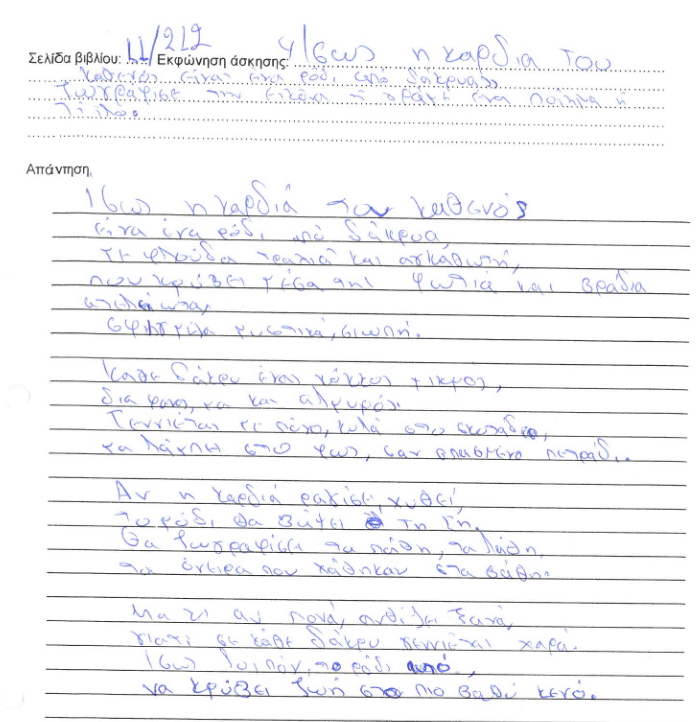 Σελίδα βιβλίου: 11/212 Εκφώνηση άσκησης: 4/Ίσως η καρδιά του
καθενός είναι ένα ρόδι από δάκρυα.
Ζωγράφισε την εικόνα ή γράψε ένα ποίημα ή
Απάντηση,
Ίσως η καρδιά του καθενός
είναι ένα ρόδι από δάκρυα,
με φλούδα και αγκαθωτή,
που κρύβει μέσα της φωτιά και βράδια
ατελείωτα,
μυστικά, σιωπή.
Κάθε δάκρυ ένας κόκκος μικρός,
διάφανος, και αλμυρός.
Γεννιέται σε πόνο, κυλά στο σκοτάδι,
να λάμπει στο φως, σαν σπασμένο πετράδι..
Αν η καρδιά ραγίσει, χυθεί,
το ρόδι θα βάψει τη Γη.
Θα ζωγραφίσει τα πάθη, τα λάθη,
τα όνειρα που χάθηκαν στα βάθη.
Μα κι αν πονά, ανθίζει ξανά,
γιατί σε κάθε δάκρυ γεννιέται χαρά.
Ίσως λοιπόν, το ρόδι αυτό,
να κρύβει ζωή στο πιο βαθύ κενό.